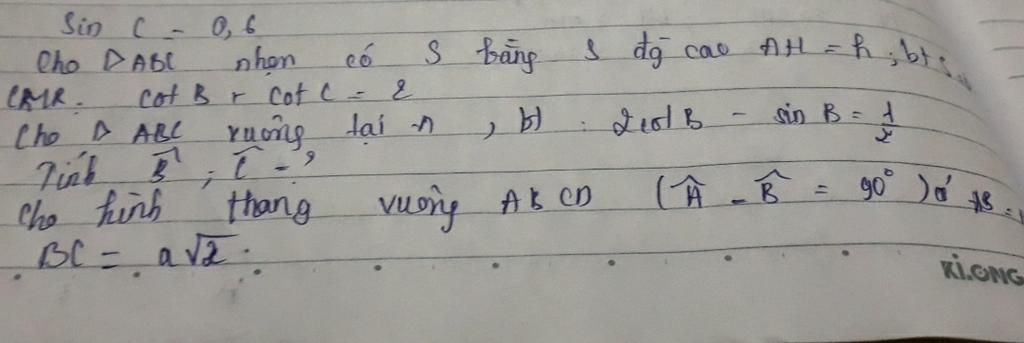 Sin C = 0,6
Cho △ABC nhọn có S bằng S đg cao AH = h ; bt S
CMR. cot B + cot C = 2
Cho △ ABC vuông tại A , bt : 2cot B - sin B = 1/2
Tính B̂ ; Ĉ = ?
Cho hình thang vuông ABCD (Â = B̂ = 90°) có AB =
BC = a√2.
KLONG